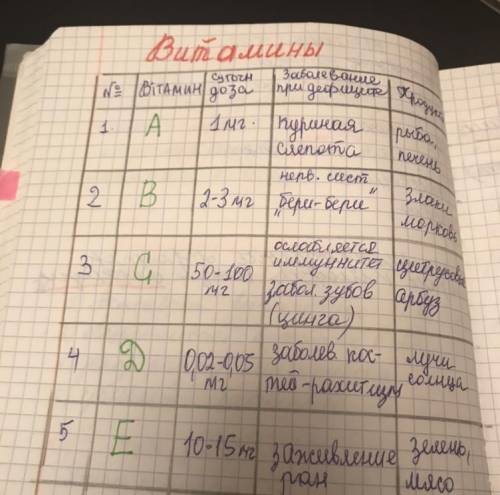 Витамины
№ Вітамин Суточн доза Заболевание при дефиците
1. А 1 мг. Куриная слепота рыба, печень
2 В 2-3 мг нерв. сист "бери-бери" Злаки морковь
3 С 50-100 мг ослабляется иммуннитет забол. зубов (цинга) арбуз
4 D 0,02-0,05 мг заболев. кос- тей-рахит лучи солнца
5 Е 10-15 мг заживление ран зелень, мясо